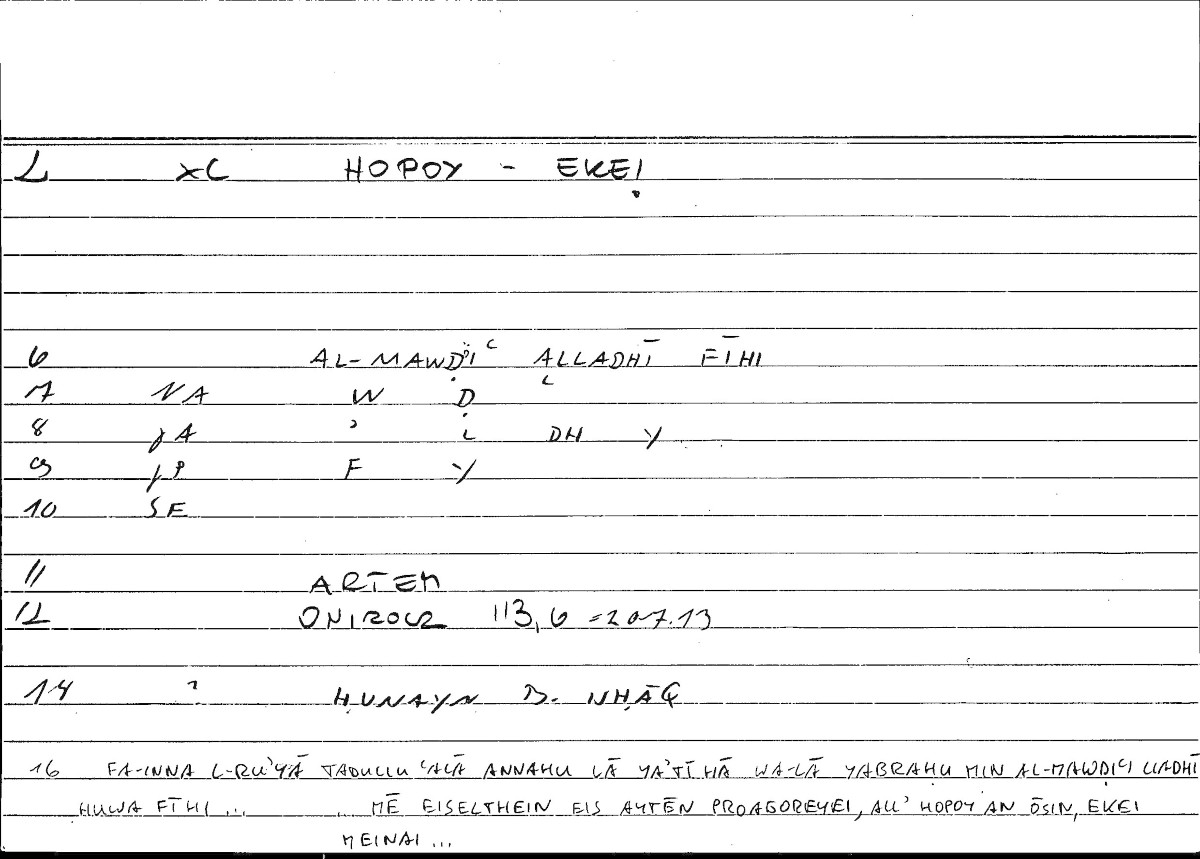 2 xc HOPOY - EKEỊ
6 AL-MAWḌIʿ ALLADHĪ FĪHI
7 NA W Ḍ ʿ
8 jA ʾ L DH Y
9 jP F Y
10 SE
11 ARTEM
12 ONIROCR 113,6 = 207.13
14 ? ḤUNAYN B. ISḤĀQ
16 FA-INNA L-RUʾYĀ TADULLU ʿALĀ ANNAHU LĀ YAʾTĪHĀ WA-LĀ YABRAḤU MIN AL-MAWḌIʿI LLADHĪ
HUWA FĪHI ... ... MĒ EISELTHEIN EIS AYTĒN PROAGOREYEI, ALL' HOPOY AN ŌSIN, EKEI
MEINAI ...